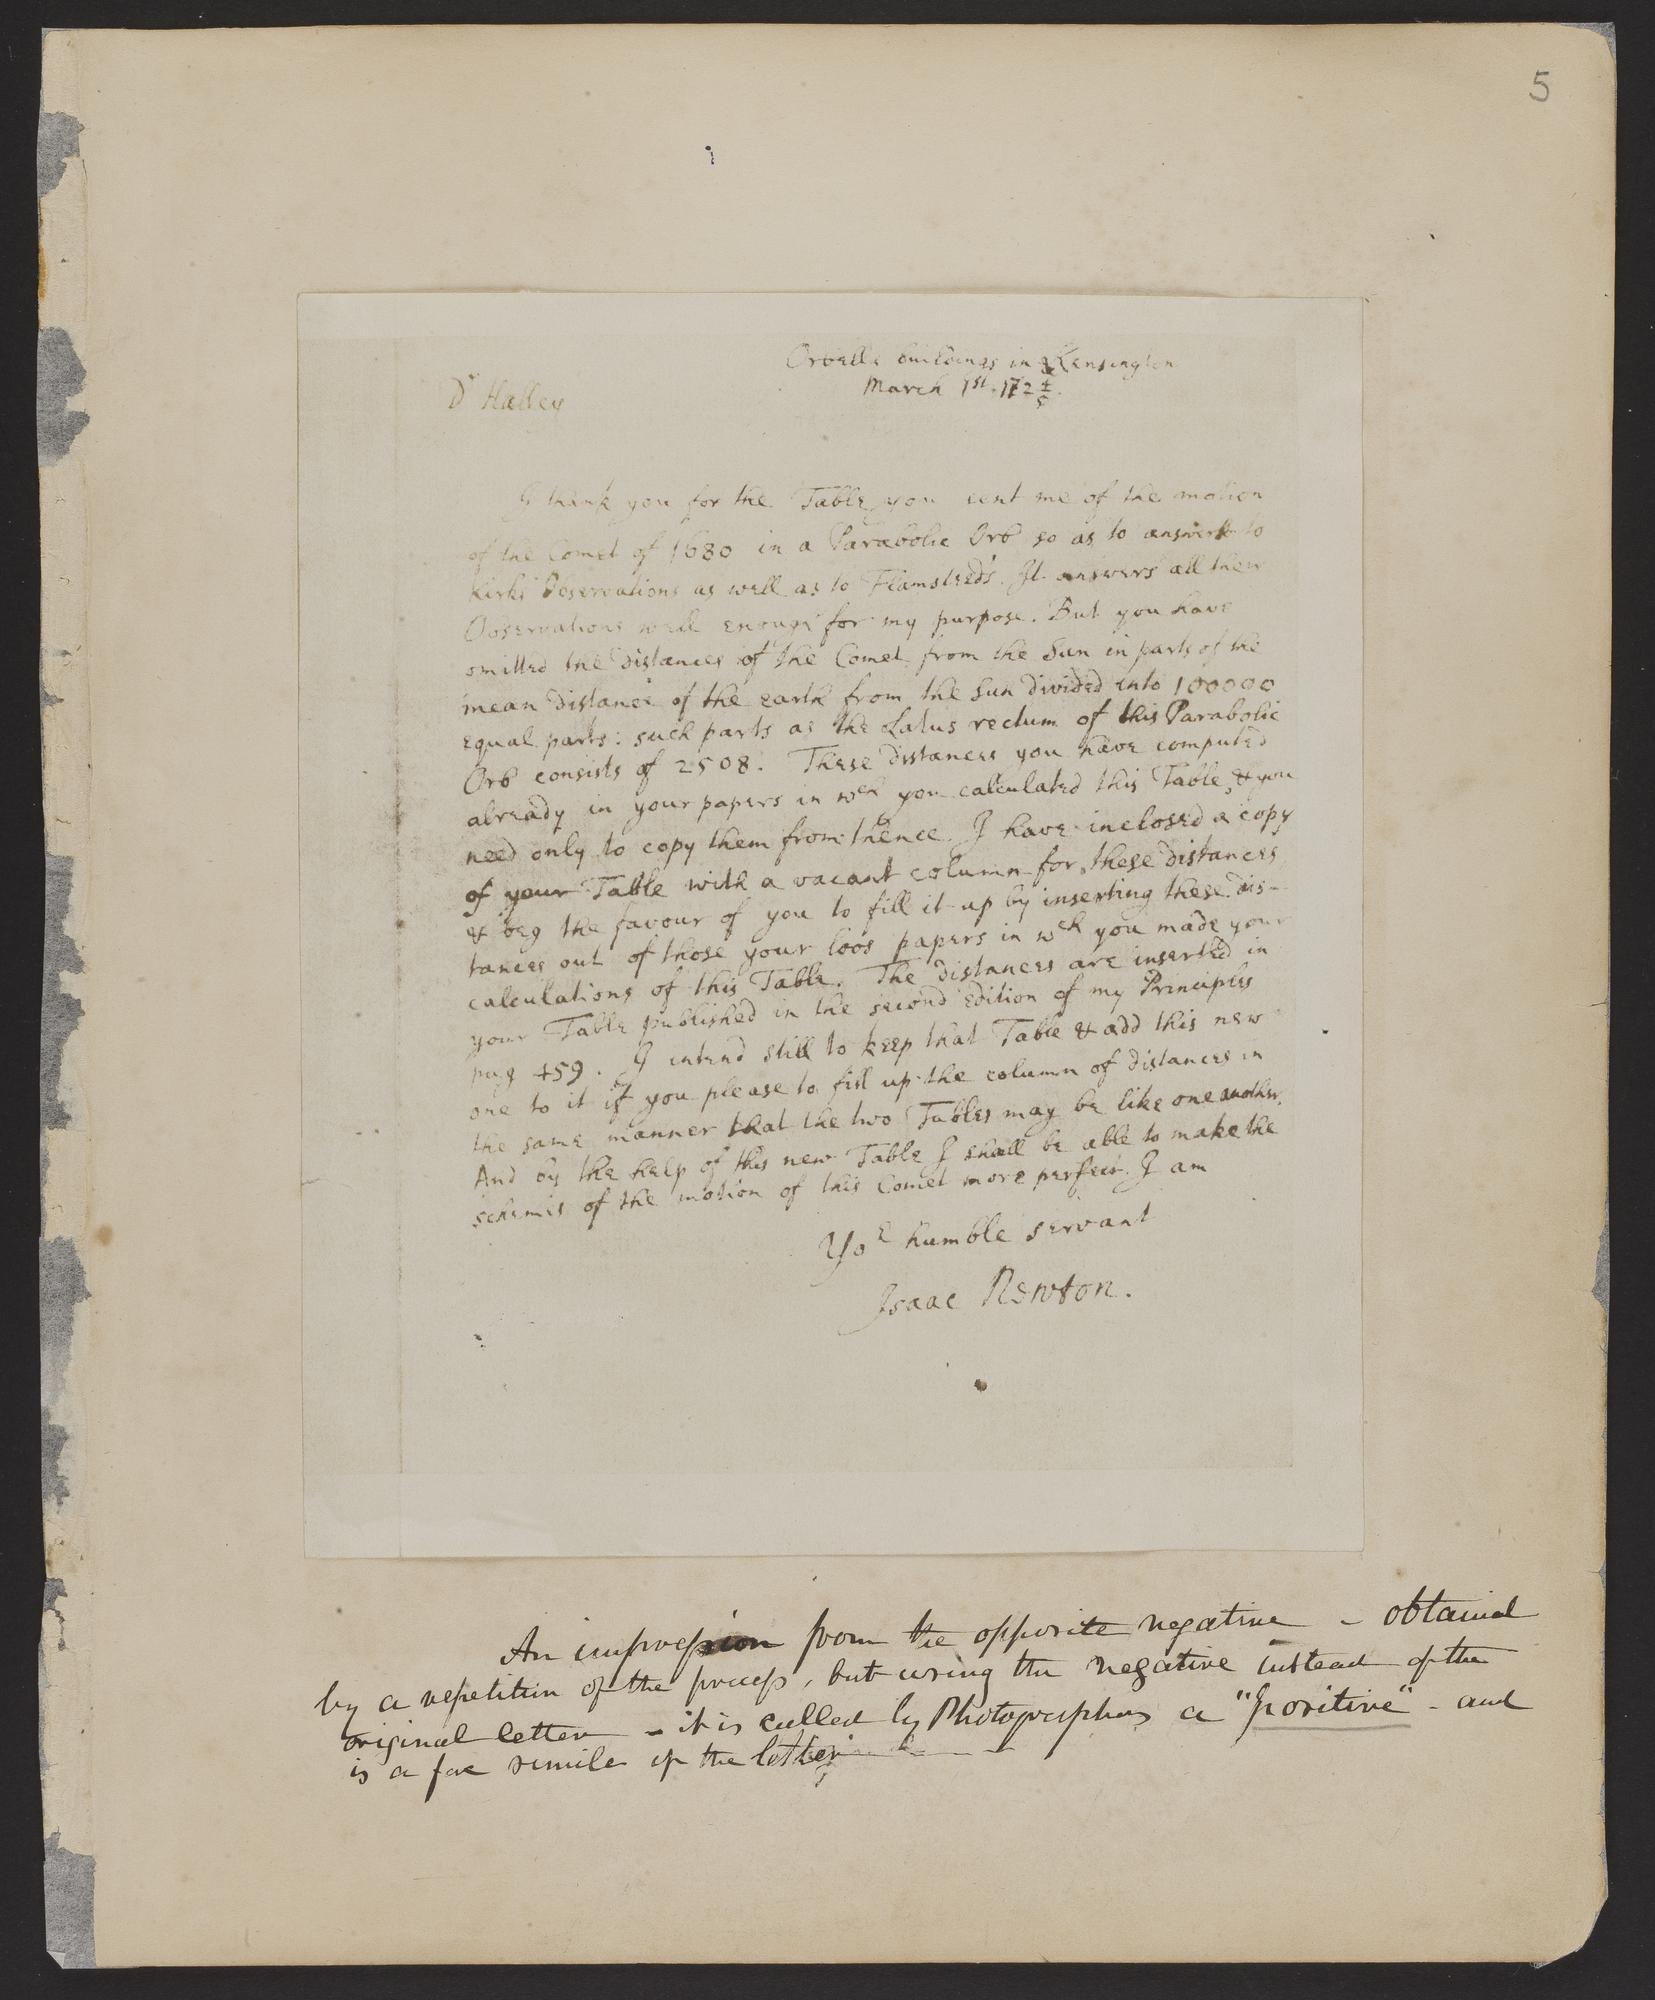 5
Orbells buildings in Kensington
March 1st. 172 4/5.
Dr Halley
I thank you for the Table you sent me of the motion
of the Comet of 1680 in a Parabolic Orb so as to answer to
Kirks Observations as well as to Flamsteeds. It answers all their
Observations well enough for my purpose. But you have
omitted the distances of the Comet from the Sun in parts of the
mean distance of the earth from the Sun divided into 100000
equal parts: such parts as the Latus rectum of this Parabolic
Orb consists of 2508. These distances you have computed
already in your papers in wch you calculated this Table, & you
need only to copy them from thence. I have inclosed a copy
of your Table with a vacant column for these distances
& beg the favour of you to fill it up by inserting these dis-
tances out of those your loos papers in wch you made your
calculations of this Table. The distances are inserted in
your Table published in the second edition of my Principles
pag 459. I intend still to keep that Table & add this new
one to it if you please to fill up the column of distances in
the same manner that the two Tables may be like one another.
And by the help of this new Table I shall be able to make the
schemes of the motion of this Comet more perfect. I am
Yor humble servant
Isaac Newton.
An impression from the opposite negative - obtained
by a repetition of the process, but using the negative instead of the
original letter - it is called by Photographers a "positive" - and
is a fac simile of the letter